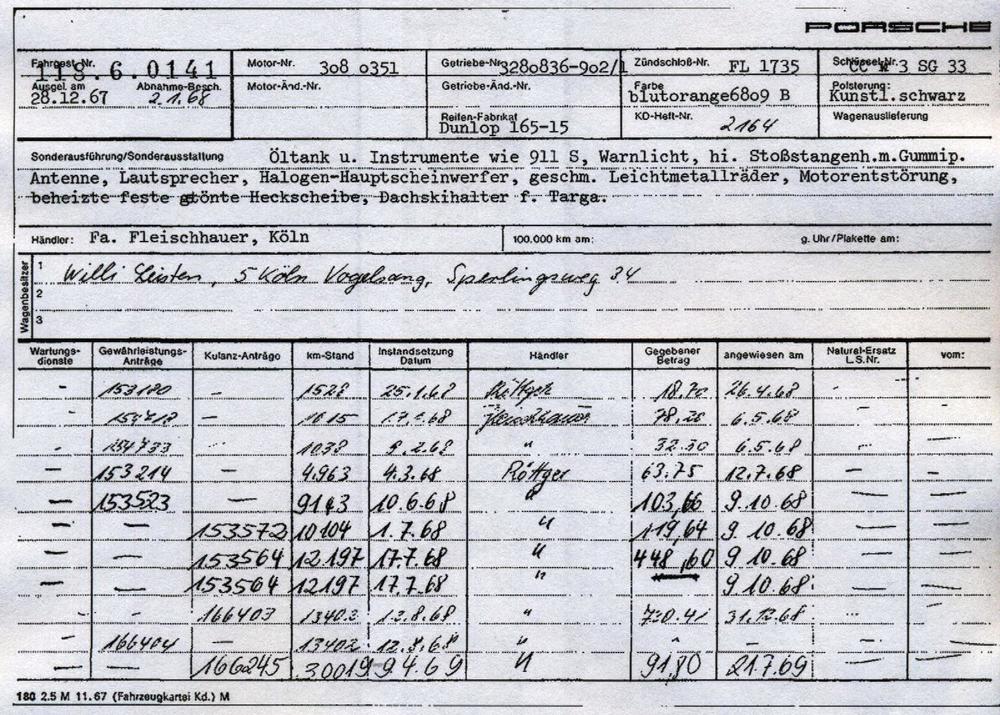 PORSCHE
Fahrgest.Nr. 118.6.0141 Motor-Nr. 308 0351 Getriebe-Nr. 3280836-902/1 Zündschloß-Nr. FL 1735 Schlüssel-Nr. SG 33
Ausgel. am 28.12.67 Abnahme-Besch. 2.1.68 Motor-Änd.-Nr. Getriebe-Änd.-Nr. Farbe blutorange6809 B Polsterung: Kunstl.schwarz
Reifen-Fabrikat Dunlop 165-15 KD-Heft-Nr. 2164 Wagenauslieferung
Sonderausführung/Sonderausstattung Öltank u. Instrumente wie 911 S, Warnlicht, hi. Stoßstangenh.m.Gummip.
Antenne, Lautsprecher, Halogen-Hauptscheinwerfer, geschm. Leichtmetallräder, Motorentstörung,
beheizte feste gtönte Heckscheibe, Dachskihalter f. Targa.
Händler: Fa. Fleischhauer, Köln 100.000 km am: g. Uhr/Plakette am:
Wagenbesitzer
1 Willi Leisten, 5 Köln Vogelsang, Sperlingsweg 34
2
3
Wartungs-dienste Gewährleistungs-Anträge Kulanz-Anträge km-Stand Instandsetzung Datum Händler Gegebener Betrag angewiesen am Natural-Ersatz L.S.Nr. vom:
- 153180 - 1528 25.1.68 Röttger 18.70 26.4.68 - -
- - 1015 Fleischhauer 78.20 6.5.68 - -
- - 1038 9.2.68 " 32.30 6.5.68 - -
- 153214 - 4.963 4.3.68 Röttger 63.75 12.7.68 - -
- 153523 - 9143 10.6.68 " 103,66 9.10.68 - -
- - 153572 10104 1.7.68 " 119,64 9.10.68 - -
- - 153564 12.197 17.7.68 " 448,60 9.10.68 - -
- - 153564 12197 17.7.68 " 9.10.68 - -
- - 166403 13402 " 31.12.68 - -
- 166404 - 13402 " - - - -
- - 166245 30019 9.4.69 " 91,80 21.7.69 - -
180 2.5 M 11.67 (Fahrzeugkartei Kd.) M